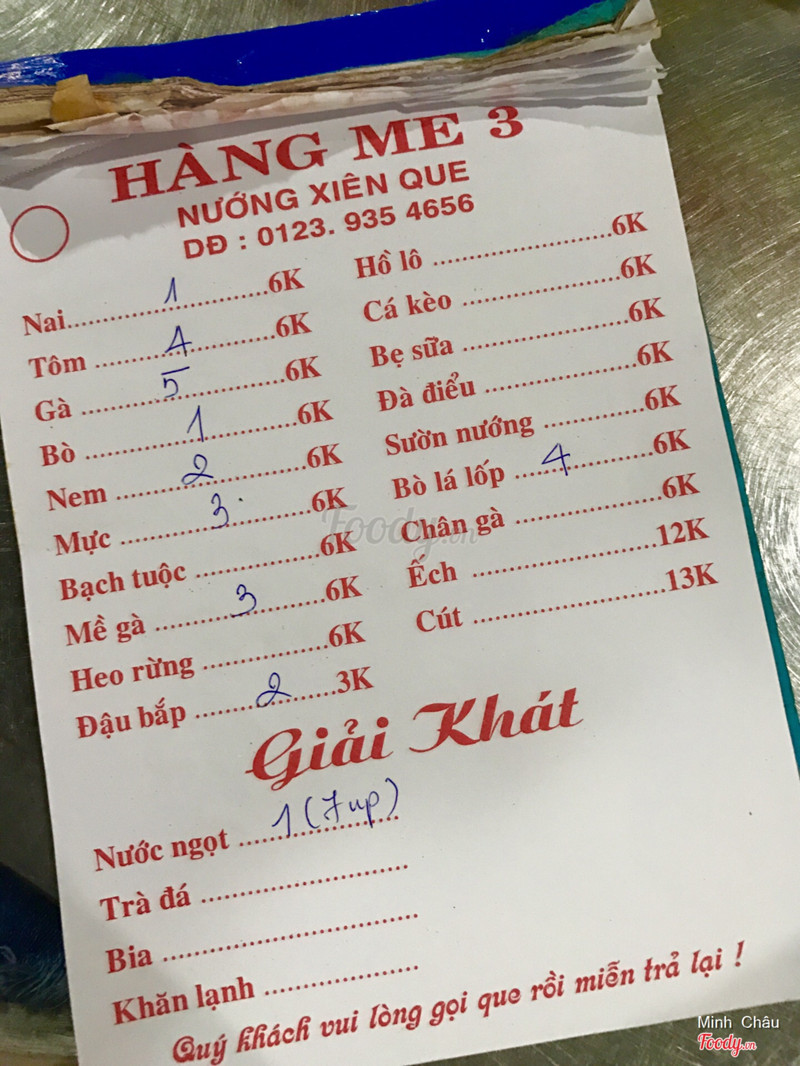 HÀNG ME 3
NƯỚNG XIÊN QUE
DĐ : 0123. 935 4656
Nai.......... 1 ..........6K
Tôm .......... 4 ..........6K
Gà .......... 5 ..........6K
Bò .......... 1 ..........6K
Nem .......... 2 ..........6K
Mực .......... 3 ..........6K
Bạch tuộc ....................6K
Mề gà .......... 3 ..........6K
Heo rừng ....................6K
Đậu bắp .......... 2 ..........3K
Hồ lô ....................6K
Cá kèo ....................6K
Bẹ sữa ....................6K
Đà điểu ....................6K
Sườn nướng ....................6K
Bò lá lốp .... 4 ..........6K
Chân gà ....................6K
Ếch ....................12K
Cút ....................13K
Giải Khát
Nước ngọt .... 1 (7up)
Trà đá ....................
Bia ....................
Khăn lạnh ....................
Quý khách vui lòng gọi que rồi miễn trả lại !
Foody.vn
Minh Châu
Foody.vn